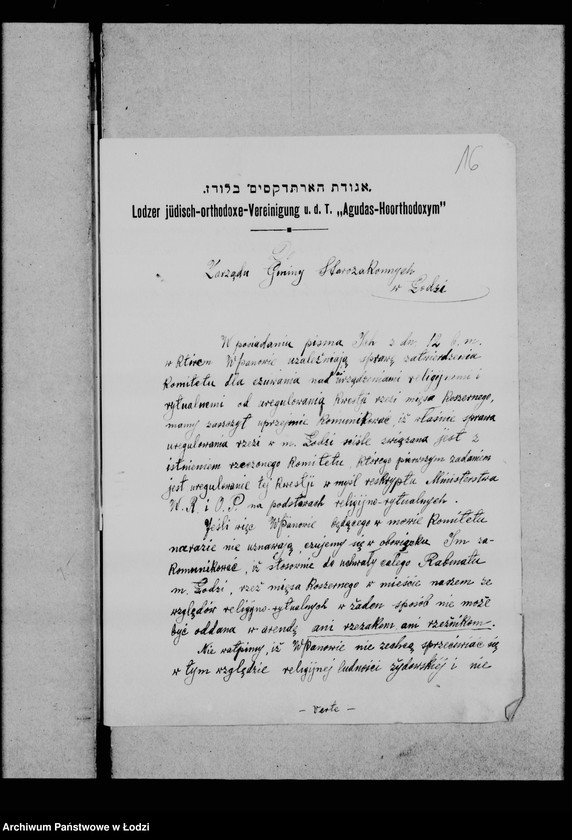 16
.אגודת הארתדקסים' בלודז.
Lodzer jüdisch-orthodoxe-Vereinigung u. d. T. „Agudas-Hoorthodoxym"
Do
Zarządu Gminy Starozakonnych
w Łodzi
W posiadaniu pisma Ich z dn. 12 b. m.
w którem WPanowie uzależniają sprawę zatwierdzenia
Komitetu dla czuwania nad urządzeniami religijnemi i
rytualnemi od uregulowania kwestji rzezi mięsa koszernego,
mamy zaszczyt uprzejmie komunikować, iż właśnie sprawa
uregulowania rzezi w m. Łodzi ściśle związana jest z
istnieniem rzeczonego Komitetu, którego pierwszym zadaniem
jest uregulowanie tej kwestji w myśl reskryptu Ministerstwa
W. R. i O. P. na podstawach religijno-rytualnych.
Jeśli więc WPanowie będącego w mowie Komitetu
narazie nie uznawają, czujemy się w obowiązku Im za-
komunikować, iż stosownie do uchwały całego Rabinatu
m. Łodzi, rzeź mięsa koszernego w mieście naszem ze
względów religijno-rytualnych w żaden sposób nie może
być oddana w arendę ani rzezakom ani rzeźnikom.
Nie wątpimy, iż WPanowie nie zechcą sprzeciwiać się
w tym względzie religijnej ludności żydowskiej i nie
– verte –
Archiwum Państwowe w Łodzi